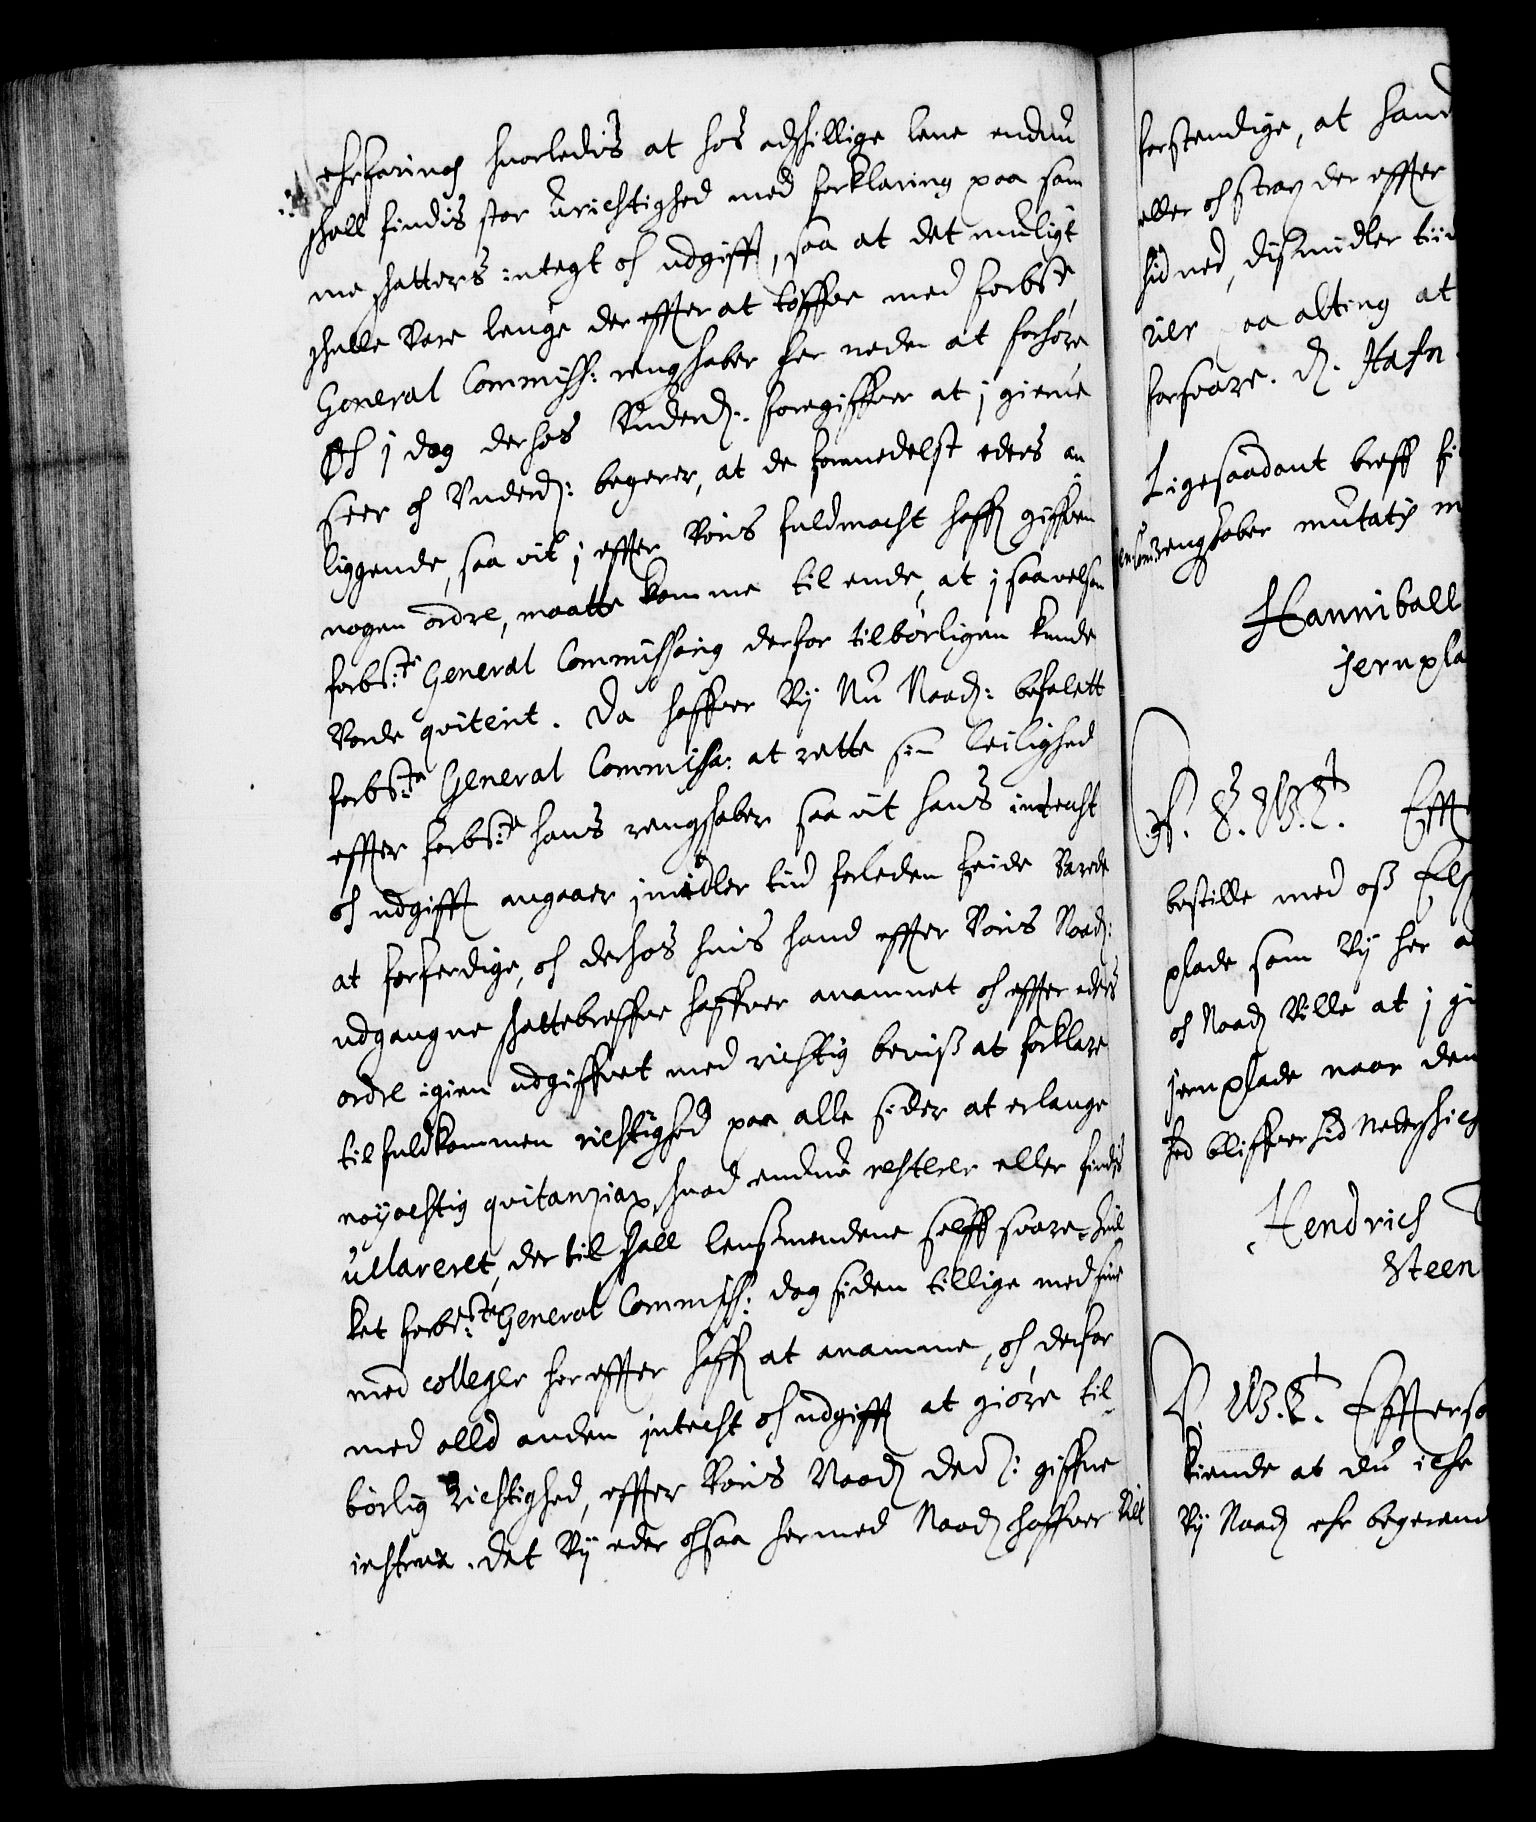 ehrfaring huorledis at hos adskillige lene endnu
skall findis stor urichtighed med forklaring paa som
me skatters integt och udgifft, saa at det muligt
skulle Vare lenge der effter at töffve med forbte
General Commiss: rengskaber her neder at forhöre
Och j dog derhos Underd: foregiffver at j gierne
seer och Underd: begerer, at de formedelst eders an
liggende, saa vit j effter Voris fuldmacht haffr giffven
nogen ordre, maatte komme til ende, at j saavelsom
forbte General Commissarig derfor tilbörligen kunde
Vorde qviterit. Da haffver Vij Nu Naad: befalett
forbte General Commissa: at rette sin leilighed
effter forbte hans rengskaber saa vit hans indtecht
och udgifft angaaer jmidler tiid forleden Feide Varede
at forferdige, och derhos huis hand effter Voris Naad:
udgangne skattebreffve haffver anammet och effter eders
ordre igien udgiffvet med richtig beviß at forklare
til fuldkommen richtighed paa alle sider at erlange
nöyachtig qvitanziar, huad endnu resterer eller findis
uklareret, der til skall lensmendene selff svare, huil
ket forbte General Commiss: dog siden tillige med sine
med colleger her effter haffr at anamme, och derfor
med alld anden jntecht och udgifft at giöre til
börlig Richtighed, effter Voris Naad der: giffne
instrux. Det Vij eder ochsaa hermed Naad haffver Vilt
forstendige, at hand
eller och strax der effter
hid ned, disimidler tiid
paa alting at
forsvare. D. Hafn.
Ligesaadant breff
rengskaber mutatis m
Hanniball
jernpla
Efft
bestille med oß
plade som Vij her
och Naad Ville at j gi
jernplade naar den
hed bliffver hid nederskich
Hendrich
Steen
Effterso
kiende at du iche
Vij Naad ehr begerend